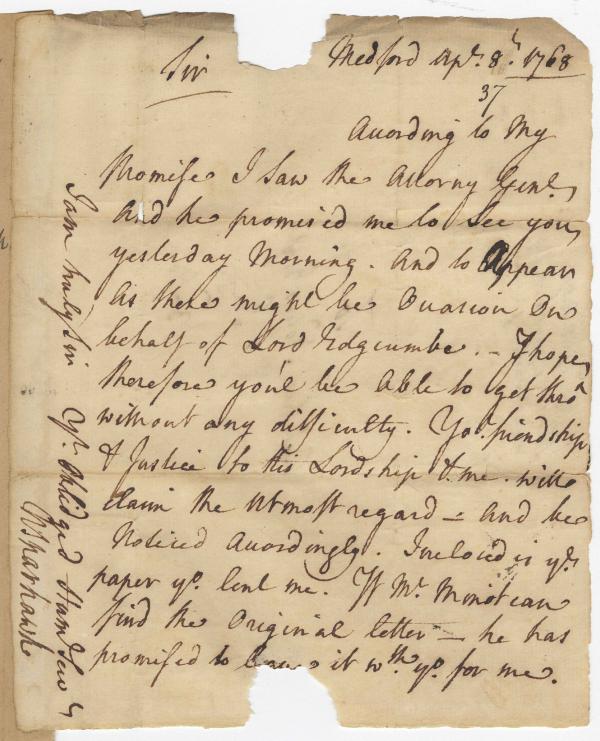 Sir Medford Apl. 8th. 1768
37
According to My
Promise I Saw the Attorny Genl,
And he promised me to See you,
yesterday Morning. And to Appear
As there might be Occasion On
behalf of Lord Edgcumbe. – I hope,
therefore you'l be Able to get thrô
without any difficulty. Yor. friendship
& Justice to His Lordship & me will
claim the Utmost regard – and be
Noticed Accordingly. Inclosed is ye.
paper yo. lent me. If Mr. Minot can
find the Original letter – he has
promised to leave it wth. yo. for me.
I am truly Sir Yr. Obliged Hum Serv
N Sparhawk